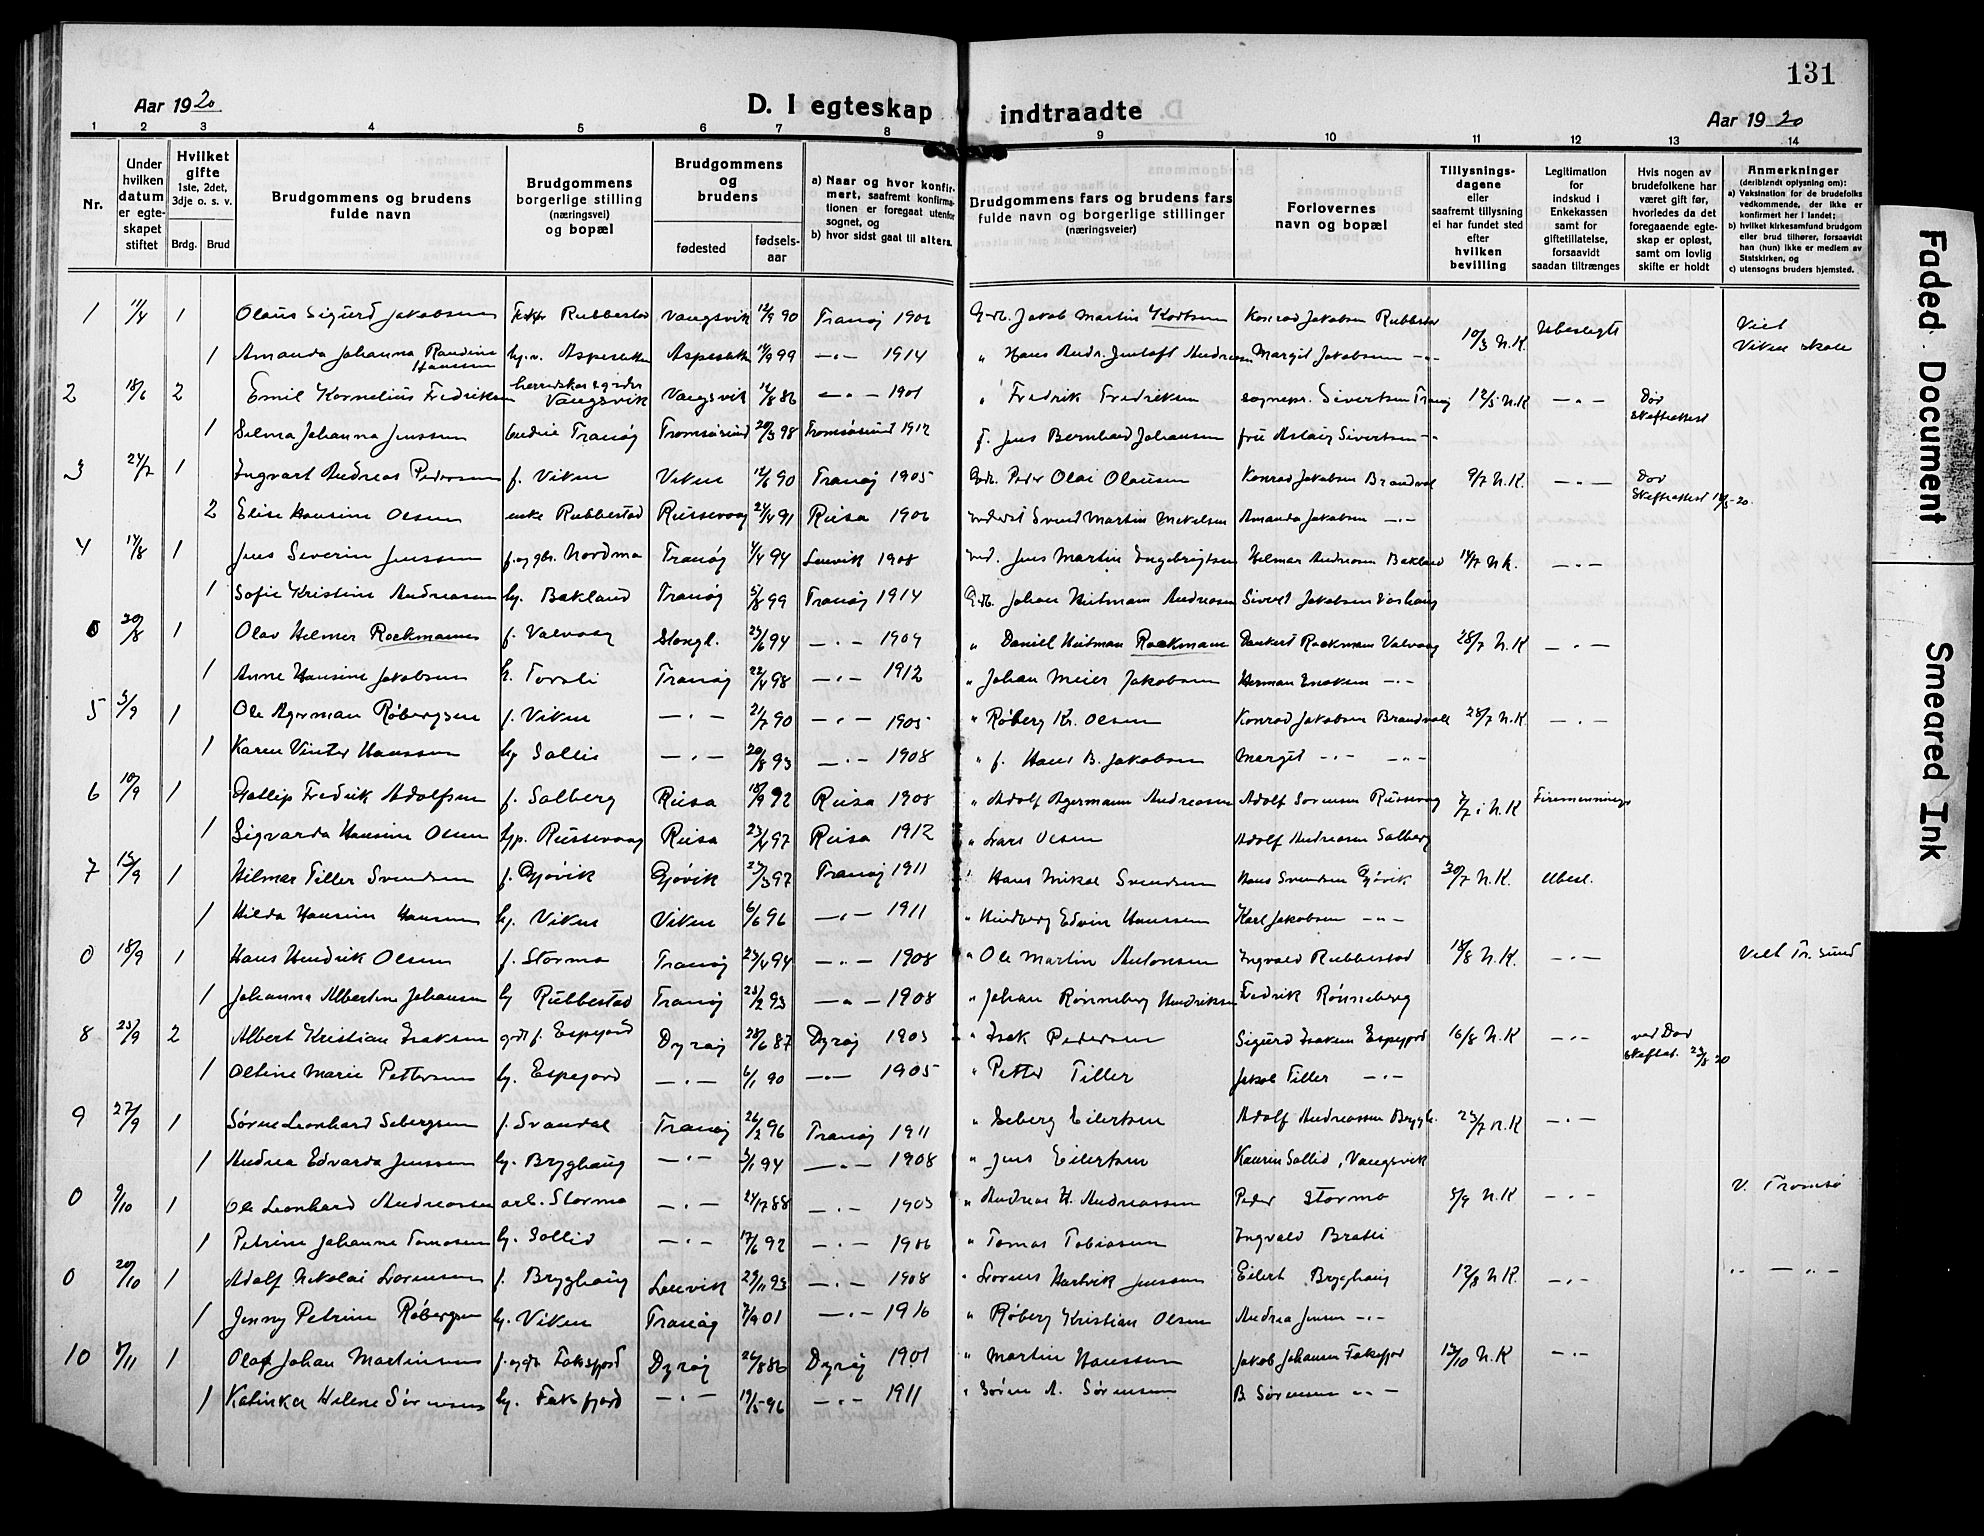 131
Aar 1920
D. I egteskap indtraadte
Aar 1920
1 2 3 4 5 6 7 8 9 10 11 12 13 14
Nr.
Under hvilken datum er egteskapet stiftet
Hvilket gifte 1ste, 2det, 3dje o. s. v.
Brdg. Brud
Brudgommens og brudens fulde navn
Brudgommens borgerlige stilling (næringsvei) og bopæl
Brudgommens og brudens
fødested fødselsaar
a) Naar og hvor konfirmert, saafremt konfirmationen er foregaat utenfor sognet, og
b) hvor sidst gaat til alters.
Brudgommens fars og brudens fars fulde navn og borgerlige stillinger (næringsveier)
Forlovernes navn og bopæl
Tillysningsdagene eller saafremt tillysning ei har fundet sted efter hvilken bevilling
Legitimation for indskud i Enkekassen samt for giftetillatelse, forsaavidt saadan tiltrænges
Hvis nogen av brudefolkene har været gift før, hvorledes da det foregaaende egteskap er opløst, samt om lovlig skifte er holdt
Anmerkninger (deriblandt oplysning om):
a) Vaksination for de brudefolks vedkommende, der ikke er konfirmert her i landet;
b) hvilket kirkesamfund brudgom eller brud tilhører, forsaavidt han (hun) ikke er medlem av Statskirken, og
c) utensogns bruders hjemsted.
1 1 Olaus Sigurd Jakobsen Rubbestad Vangsvik 12/9 90 Tranøy 1906 Jakob Martin Kortsen Konrad Jakobsen Rubbestad 10/3 N.K. Ubeslegt Viet Viken skole
1 Amanda Johanna Randine Hanssen Aspeslettn Aspeslettn 99 —„— 1914 „ Hans Andr. Jentoft Andreasen Margit Jakobsen —„—
2 18/6 2 Emil Kornelius Fredriksen Vangsvik Vangsvik 86 —„— 1901 „ Fredrik Fredriksen sognepr. Sivertsen Tranøy 12/5 N.K —„— Død Skifteattest
1 Selma Johanna Jenssen Tranøy Tromsøsund 20/3 98 Tromsøsund 1912 f. Jens Bernhard Johansen fru Aslaug Sivertsen —„—
3 24/7 1 Ingvart Andreas Pedersen f. Viken Viken 12/6 90 Tranøy 1905 Peder Olai Olausen Konrad Jakobsen Brandvol 9/7 N.K. —„— Død Skifteattest 18/5-20
2 Elise Hansine Olsen enke Rubbestad Russevaag 24/4 91 Reisa 1906 Svend Martin Mikelsen Amanda Jakobsen —„—
4 14/8 1 Jens Severin Jenssen f. og gbr. Nordmo Tranøy 4/4 94 Lenvik 1908 Jens Martin Ingebrigtsen Helmar Andreasen Bakland 14/7 N.K. —„—
1 Sofie Kristine Andreasen hj. Bakland Tranøy 5/8 99 Tranøy 1914 Johan Hutmann Andreasen Sivert Jakobsen Vorhaug
0 20/8 1 Olav Helmer Rockmann f. Valvaag Stongl. 23/6 94 —„— 1909 „ Daniel Hutman Rockmann Dankert Rockman Valvaag 28/7 N.K —„—
1 Anne Hansine Jakobsen h. Torsli Tranøy 22/4 98 —„— 1912 „ Johan Meier Jakobsen Herman Enoksen —„—
5 5/9 1 Ole Agerman Røbergsen f. Viken —„— 21/7 90 —„— 1905 „ Røberg Kr. Olsen Konrad Jakobsen Brandvoll 28/7 N.K —„—
1 Karen Vinter Hanssen hj Sollie —„— 20/8 93 —„— 1908 „ f. Hans B. Jakobsen Margit —„— —„—
6 10/9 1 Gotlip Fredrik Adolfsen f. Solberg Reisa 18/9 92 Reisa 1908 „ Adolf Agermann Andreasen Adolf Sørensen Russevaag 7/7 N.K Firemenninge
1 Sigvarda Hansine Olsen hjp. Russevaag Reisa 23/4 97 Reisa 1912 „ Lars Olsen Adolf Andreasen Solberg
7 15/9 1 Hilmar Tiller Svendsen f. Gjøvik Gjøvik 23/3 97 Tranøy 1911 „ Hans Mikal Svendsen Hans Svendsen Gjøvik 30/7 N.K. Ubesl.
1 Hilda Hansine Hansen hj. Viken Viken 6/6 96 —„— 1911 „ Hindberg Edvin Hanssen Karl Jakobsen —„—
0 18/9 1 Hans Hendrik Olsen f. Stormo Tranøy 23/4 94 —„— 1908 „ Ole Martin Antonsen Ingvald Rubbestad 18/8 N.K. —„— Viet Tr. Sund
1 Johanna Albertine Johansen hj Rubbestad Tranøy 23/2 93 —„— 1908 „ Johan Rønneberg Hendriksen Fredrik Rønneberg
8 25/9 2 Albert Kristian Isaksen f. Espejord Dyrøy 28/6 87 Dyrøy 1903 „ Isak Pedersen Sigurd Isaksen Espejord 16/8 N.K —„— ved Død skifteat. 24/8 20
1 Oline Marie Pettersen hj. Espejord —„— 6/1 90 —„— 1905 „ Petter Tiller Jakob Tiller —„—
9 27/9 1 Søren Leonhard Sebergsen f. Svandal Tranøy 26/2 96 Tranøy 1911 „ Seberg Eilertsen Adolf Andreassen Brygh. 23/7 N.K —„—
1 Andrea Edvarda Jenssen hj. Bryghaug —„— 3/1 94 —„— 1908 „ Jens Eilertsen Kaurin Sollid, Vangsvik
0 9/10 1 Ole Leonhard Andreassen arb. Stormo —„— 88 —„— 1903 „ Andreas H. Andreassen Peder Stormo 5/9 N.K —„— V. Tromsø
1 Petrine Johanne Tomasen hj. Sollid —„— 17/6 92 —„— 1906 „ Tomas Tobiasen Ingvald Bratli
0 20/10 1 Adolf Nikolai Lorensen f. Bryghaug Lenvik 29/11 93 —„— 1908 „ Lorens Hartvik Jenssen Eilert Bryghaug 12/8 N.K. —„— „ — „ —
1 Jenny Petrine Røbergsen hj. Viken Tranøy 7/9 01 —„— 1916 „ Røberg Kristian Olsen Andrea Jensen —„—
10 8/11 1 Olaf Johan Martinsen Faksfjord Dyrøy 26/8 86 Dyrøy 1901 „ Martin Hanssen Jakob Johansen Faksfjord 13/10 N.K —„—
1 Katinka Helene Sørensen hj. Faksfjord —„— 19/5 96 —„— 1911 „ Søren A. Sørensen B. Sørensen —„—
Faded Document
Smeared Ink